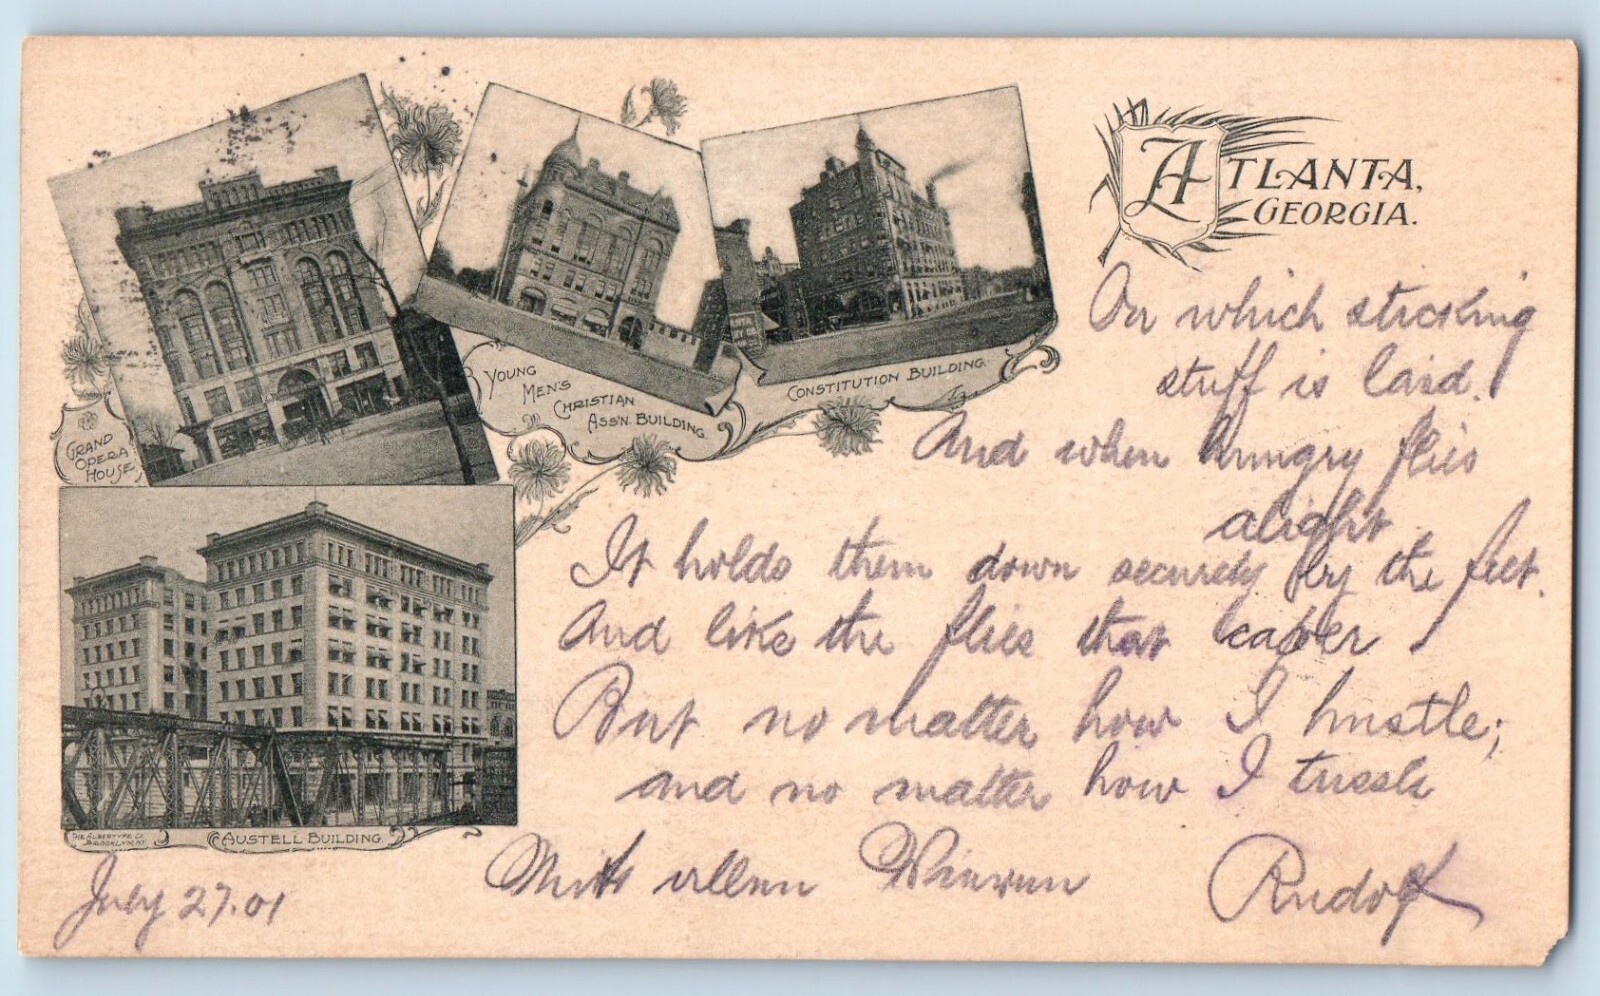 ATLANTA,
GEORGIA.
GRAND
OPERA
HOUSE
YOUNG
MEN'S
CHRISTIAN
ASS'N. BUILDING.
CONSTITUTION BUILDING.
THE ALBERTYPE CO.
BROOKLYN, N.Y.
AUSTELL BUILDING.
On which sticking
stuff is laid.
And when hungry flies
alight
It holds them down securely by the feet.
And like the flies that caper
But no matter how I hustle;
and no matter how I tussle
Rudolf
July 27.01